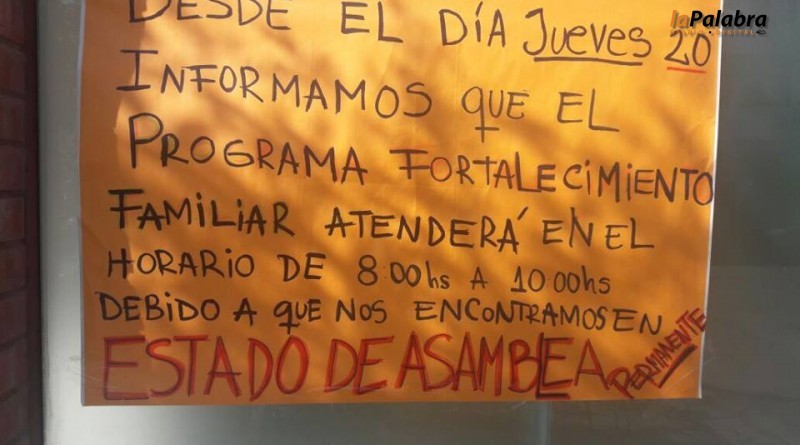 laPalabra
DESDE EL DÍA JUEVES 20
INFORMAMOS QUE EL
PROGRAMA FORTALECIMIENTO
FAMILIAR ATENDERÁ EN EL
HORARIO DE 8:00hs A 10:00hs
DEBIDO A QUE NOS ENCONTRAMOS EN
ESTADO DE ASAMBLEA PERMANENTE